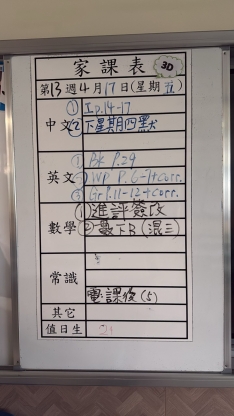 家課表 3D
第13週4月17日(星期五)
中文 ① 工p.14-17
② 下星期四默
英文 ① Bk P.29
② WP P.6-7+corr.
③ Gr P.11-12+corr.
數學 ① 進評簽改
② 數下B(混三)
常識
電:課後(5)
其它
值日生 21